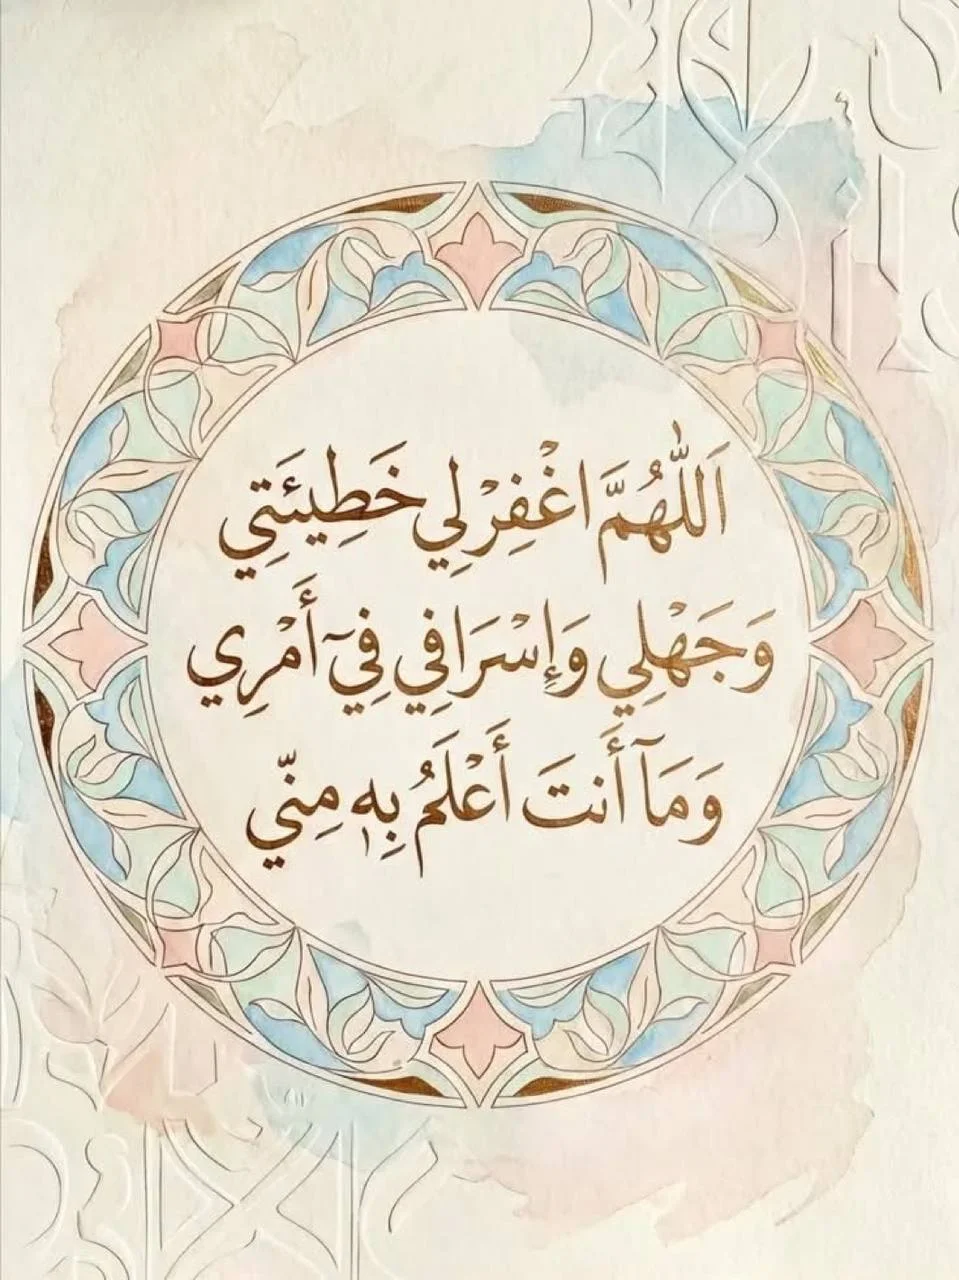 اَللّٰهُمَّ اغْفِرْ لِي خَطِيئَتِي
وَجَهْلِي وَإِسْرَافِي فِيٓ أَمْرِي
وَمَآ أَنتَ أَعْلَمُ بِهٖ مِنِّي